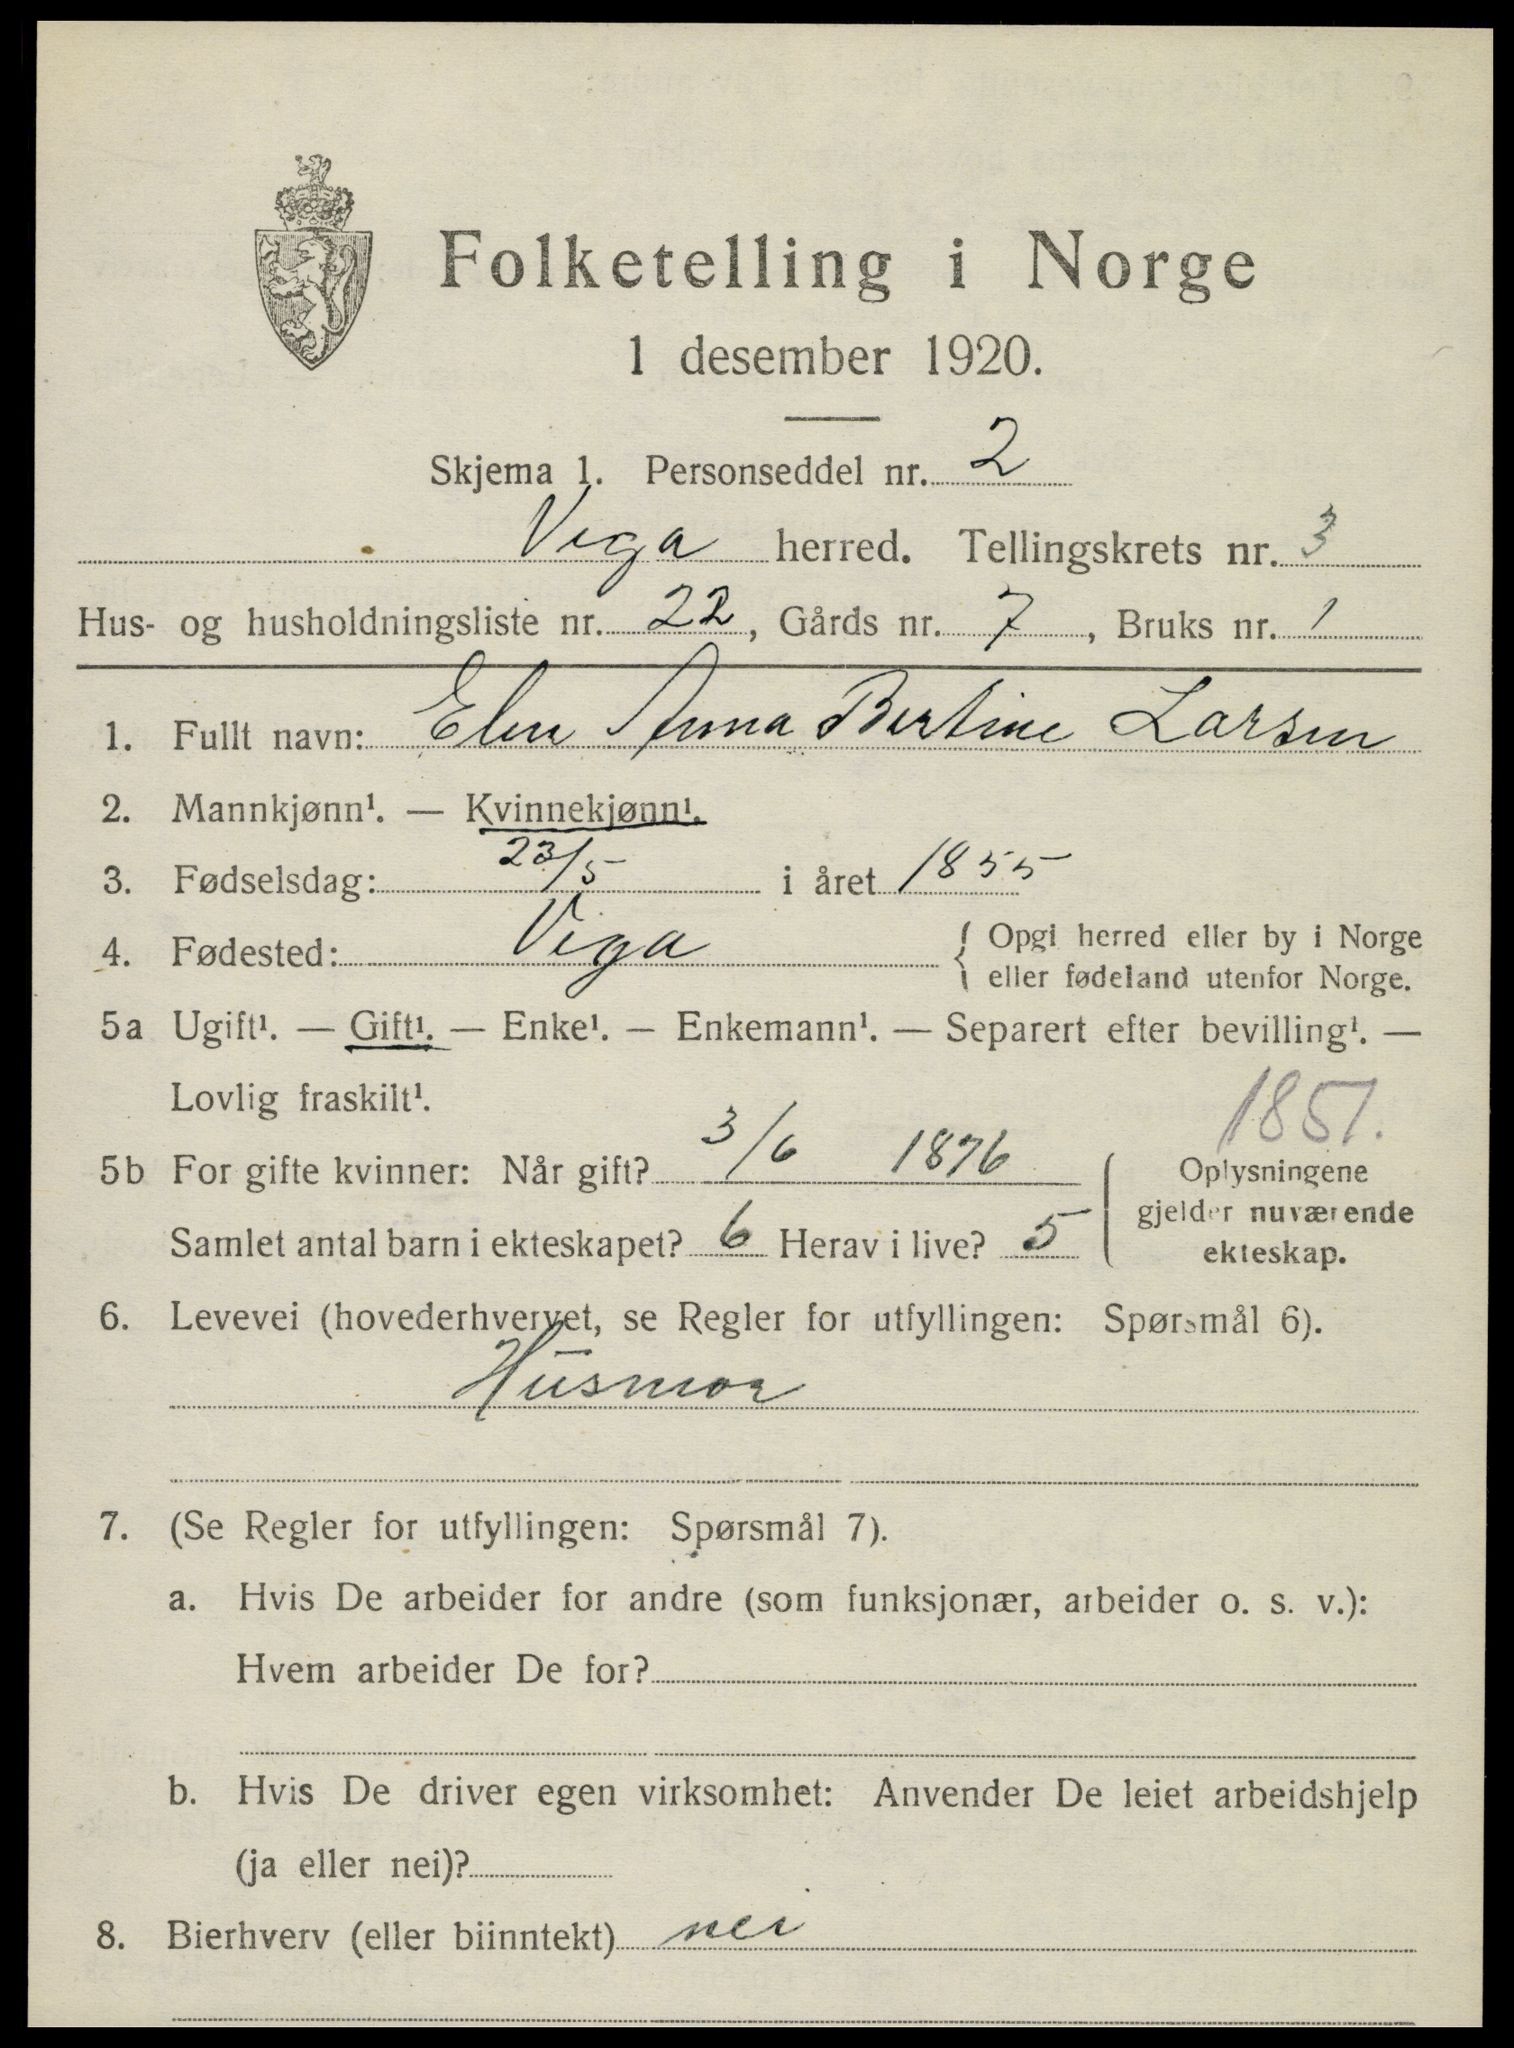 Folketelling i Norge
1 desember 1920.
Skjema 1. Personseddel nr. 2
Vega herred. Tellingskrets nr. 3
Hus- og husholdningsliste nr. 22, Gårds nr. 7, Bruks nr. 1
1. Fullt navn: Elen Anna Bertine Larsen
2. Mannkjønn¹. — Kvinnekjønn¹.
3. Fødselsdag: 23/5 i året 1855
4. Fødested: Vega { Opgi herred eller by i Norge
eller fødeland utenfor Norge.
5a Ugift¹. — Gift¹. — Enke¹. — Enkemann¹. — Separert efter bevilling¹. —
Lovlig fraskilt¹.
1851.
5b For gifte kvinner: Når gift? 3/6 1876
Samlet antal barn i ekteskapet? 6 Herav i live? 5
Oplysningene
gjelder nuværende
ekteskap.
6. Levevei (hovederhvervet, se Regler for utfyllingen: Spørsmål 6).
Husmor
7. (Se Regler for utfyllingen: Spørsmål 7).
a. Hvis De arbeider for andre (som funksjonær, arbeider o. s. v.):
Hvem arbeider De for?
b. Hvis De driver egen virksomhet: Anvender De leiet arbeidshjelp
(ja eller nei)?
8. Bierhverv (eller biinntekt) nei